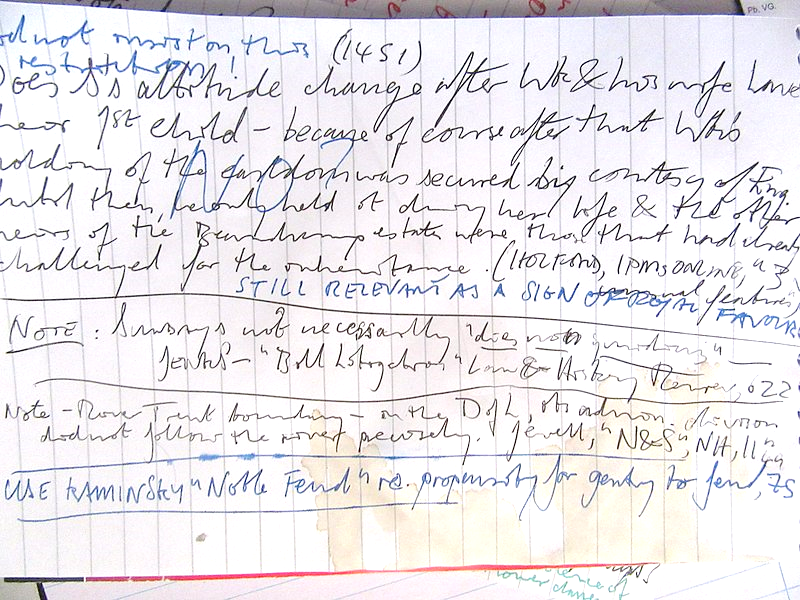 Pb. VG.
did not insist on this (1451)
restitution
Does S's attitude change after Wk & his wife have
their 1st child – because of course after that Wk's
holding of the earldom was secured by courtesy of Eng
Until then, he only held it during her life & the other
heirs of the Beauchamp estates were those that had already
challenged for the inheritance. (HOLFORD, IPMS ONLINE, "3
STILL RELEVANT AS A SIGN OF ROYAL FAVOUR
NOTE: Surveys not necessarily "does not
JENKS – "Bill Litigation" Law & History Review, 022
Note – River Trent boundary – in the DofL, its admin. division
did not follow the river precisely. Jewell, "N&S", NH, 11
USE KAMINSKY "Noble Feud" re. propensity for gentry to feud, 75
of